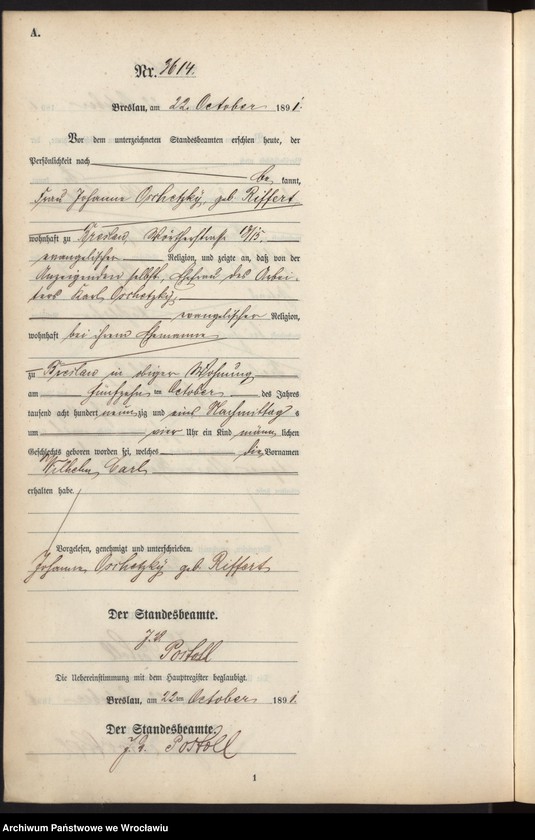 A.
Nr. 3614.
Breslau, am 22. October 1891.
Vor dem unterzeichneten Standesbeamten erschien heute, der
Persönlichkeit nach
be kannt,
Frau Johanna Oschetzky, geb. Riffert
wohnhaft zu Breslau, Wörtherstraße
evangelischer Religion, und zeigte an, daß von der
Anzeigenden selbst, Ehefrau des Arbei-
ters Karl Oschetzky,
evangelischer Religion,
wohnhaft bei ihrem Ehemanne
zu Breslau in obiger Wohnung
am fünfzehn ten October des Jahres
tausend acht hundert neun zig und eins Nachmittag s
um vier Uhr ein Kind männ lichen
Geschlechts geboren worden sei, welches die Vornamen
Wilhelm Carl
erhalten habe.
Vorgelesen, genehmigt und unterschrieben.
Johanna Oschetzky geb. Riffert
Der Standesbeamte.
J. V.
Postoll
Die Uebereinstimmung mit dem Hauptregister beglaubigt.
Breslau, am 22ten October 1891.
Der Standesbeamte.
J. V. Postoll
1
Archiwum Państwowe we Wrocławiu